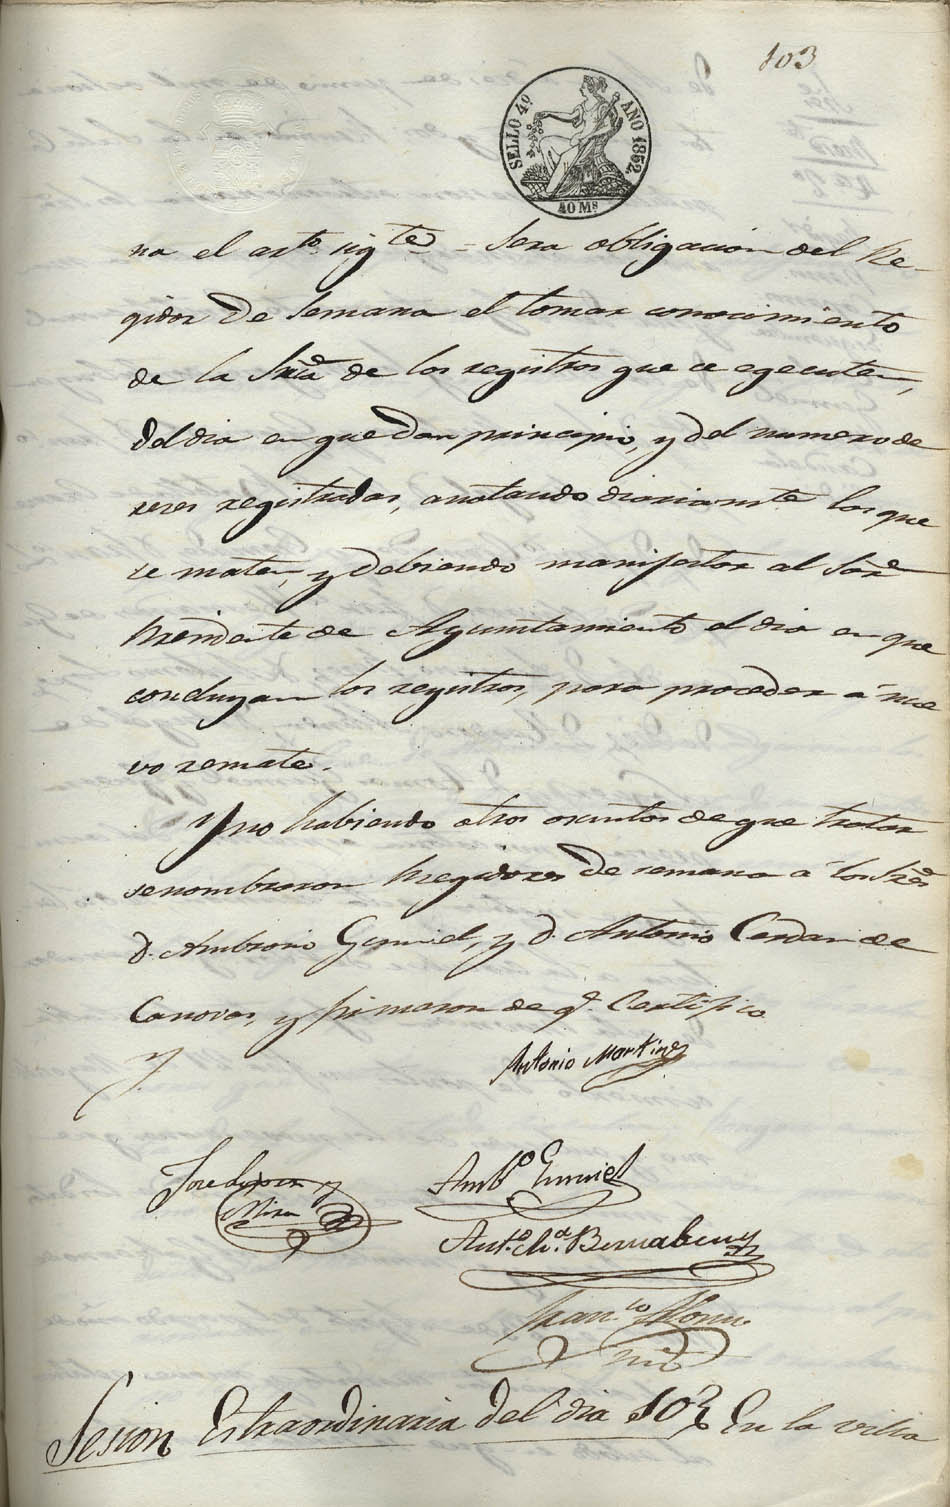 103
SELLO 4º AÑO 1852.
40 Ms
na el arto. sigte = Sera obligacion del Re-
gidor de semana el tomar conocimiento
de la Sria de los registros que se egecuten,
del dia en que dan principio, y del numero de
reses registradas, anotando diariamte los que
se maten, y debiendo manifestar al Sor
Presidente de Ayuntamiento el dia en que
concluyan los registros, para proceder á nue
vo remate.
Y no habiendo otros asuntos de que tratar
se nombraron Regidores de semana á los Sres
D. Ambrosio Gumiel, y D. Antonio Cerdan de
Canovas, y firmaron de q. Certifico
Antonio Martinez
Jose
y
Mira
Ambo Gumiel
Anto. Ma. Bernabeu
Franco Alonso
Sesion Estraordinaria del dia 10 En la villa